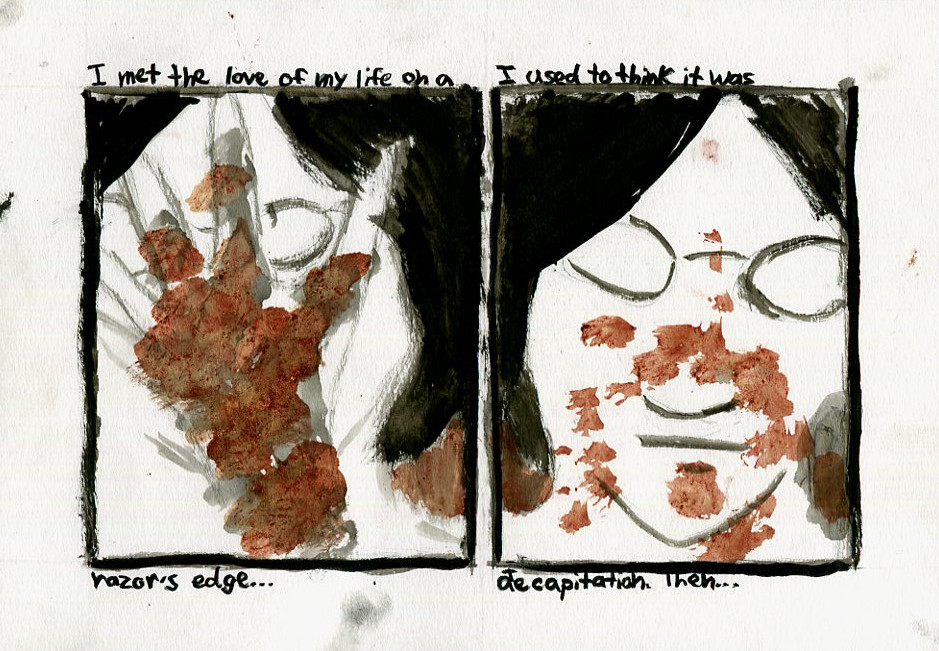 I met the love of my life on a
razor's edge...
I used to think it was
decapitation. Then...